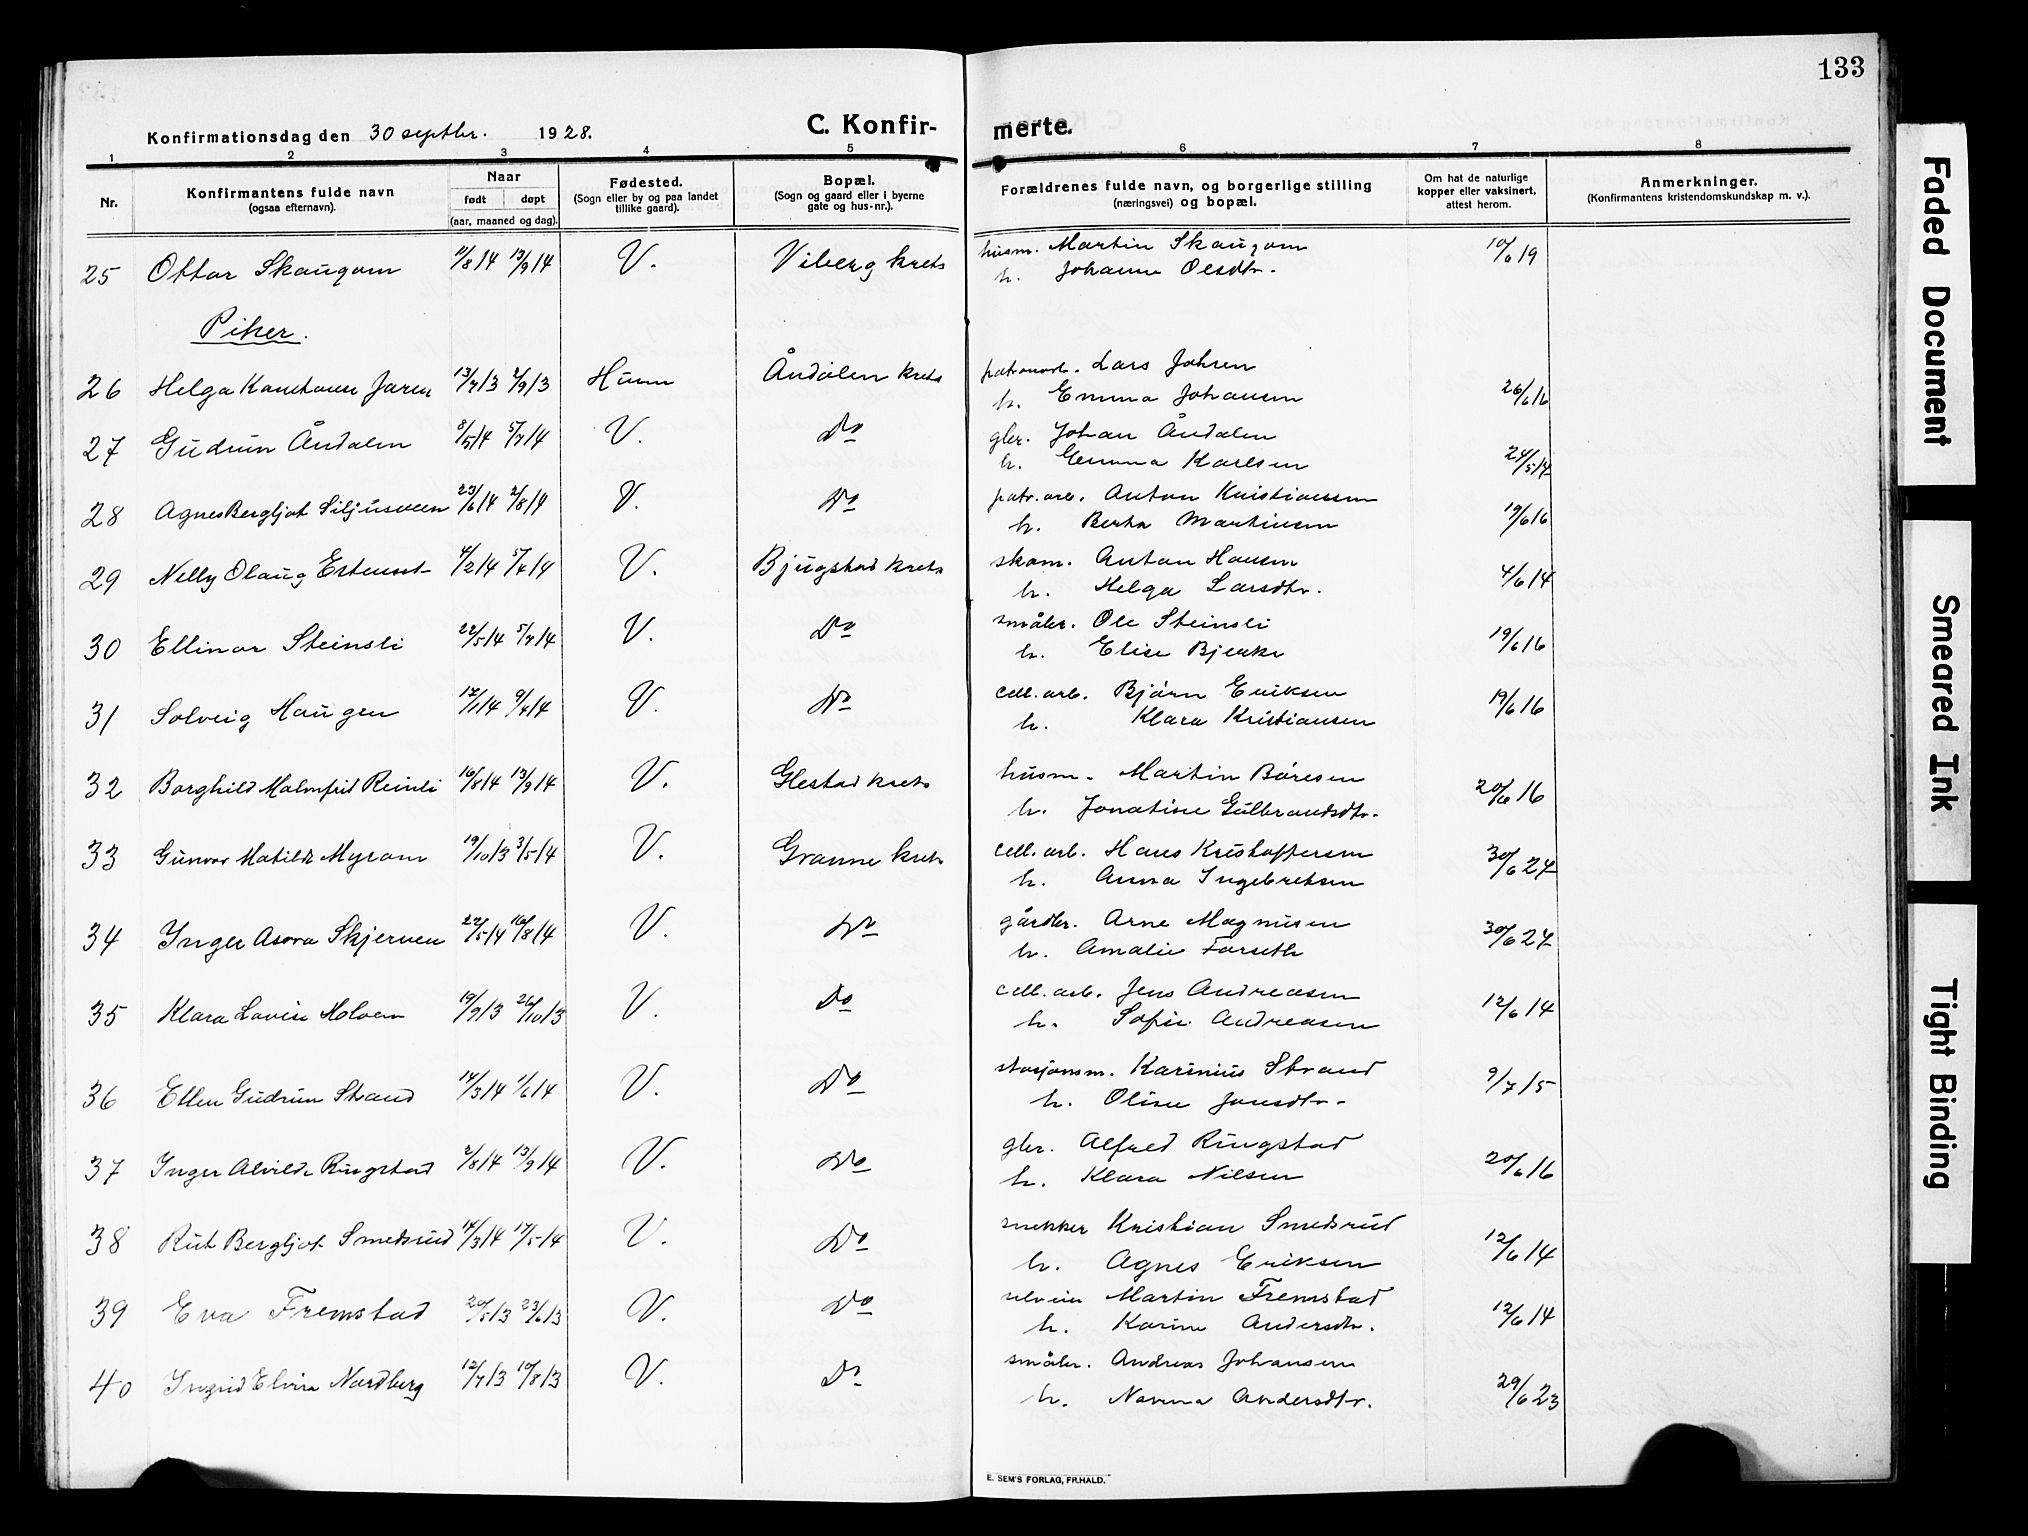 133
Konfirmationsdag den 30 septbr. 1928.
C. Konfir-
merte.
1 2 3 4 5 6 7 8
Nr.
Konfirmantens fulde navn
(ogsaa efternavn).
Naar
født døpt
(aar, maaned og dag).
Fødested.
(Sogn eller by og paa landet
tillike gaard).
Bopæl.
(Sogn og gaard eller i byerne
gate og hus-nr.).
Forældrenes fulde navn, og borgerlige stilling
(næringsvei) og bopæl.
Om hat de naturlige
kopper eller vaksinert,
attest herom.
Anmerkninger.
(Konfirmantens kristendomskundskap m. v.).
25 Ottar Skaugom 11/8 14 13/9 14 V. Viberg krets husm. Martin Skaugom 10/6 19
h. Johanne Olsdtr.
Piker.
26 Helga Konstanse Jaren 13/7 13 2/9 13 Hunn Åndalen krets Lars Johren
h. Emma Johansen 26/6 16
27 Gudrun Åndalen 8/5 14 5/7 14 V. Do gbr. Johan Åndalen
h. Emma Karlsen 24/5 14
28 Agnes Bergljot Siljusveen 23/6 14 2/8 14 V. Do patr.arb. Anton Kristiansen
h. Berta Martinsen 19/6 16
29 Nelly Olaug Estenset 4/2 14 5/4 14 V. Bjugstad krets skom. Anton Hansen
h. Helga Larsdtr. 4/6 14
30 Ellinor Steinsli 22/5 14 5/7 14 V. Do småbr. Ole Steinsli
h. Elise Bjerke 19/6 16
31 Solveig Haugen 17/1 14 9/4 14 V. Do cell.arb. Bjørn Eriksen
h. Klara Kristiansen 19/6 16
32 Borghild Malmfrid Reinli 16/8 14 13/9 14 V. Glestad krets husm. Martin Børesen
h. Jonatine Gulbrandsdtr. 20/6 16
33 Gunvor Matilde Myrom 19/10 13 3/5 14 V. Granne krets cell.arb. Hans Kristoffersen
h. Anna Ingebretsen 30/6 24
34 Inger Asora Skjerven 27/5 14 16/8 14 V. Do gårdbr. Arne Magnusen
h. Amalie Forseth 30/6 24
35 Klara Lovise Holven 19/9 13 26/10 13 V. Do cell.arb. Jens Andreasen
h. Sofie Andreasen 12/6 14
36 Ellen Gudrun Strand 14/3 14 1/6 14 V. Do stasjonsm. Karinius Strand
h. Oline Jonsdtr. 9/7 15
37 Inger Alvilde Ringstad 2/8 14 13/9 14 V. Do gbr. Alfred Ringstad
h. Klara Nilsen 20/6 16
38 Rut Bergljot Smedsrud 14/3 14 17/5 14 V. Do snekker Kristian Smedsrud
h. Agnes Eriksen 12/6 14
39 Eva Fremstad 20/5 13 23/6 13 V. Do selveier Martin Fremstad
h. Karine Andersdtr. 12/6 14
40 Ingrid Elvira Nordberg 12/7 13 10/8 13 V. Do småbr. Andreas Johansen
h. Norma Andersdtr. 29/6 23
E. SEM'S FORLAG, FR.HALD.
Faded Document
Smeared Ink
Tight Binding